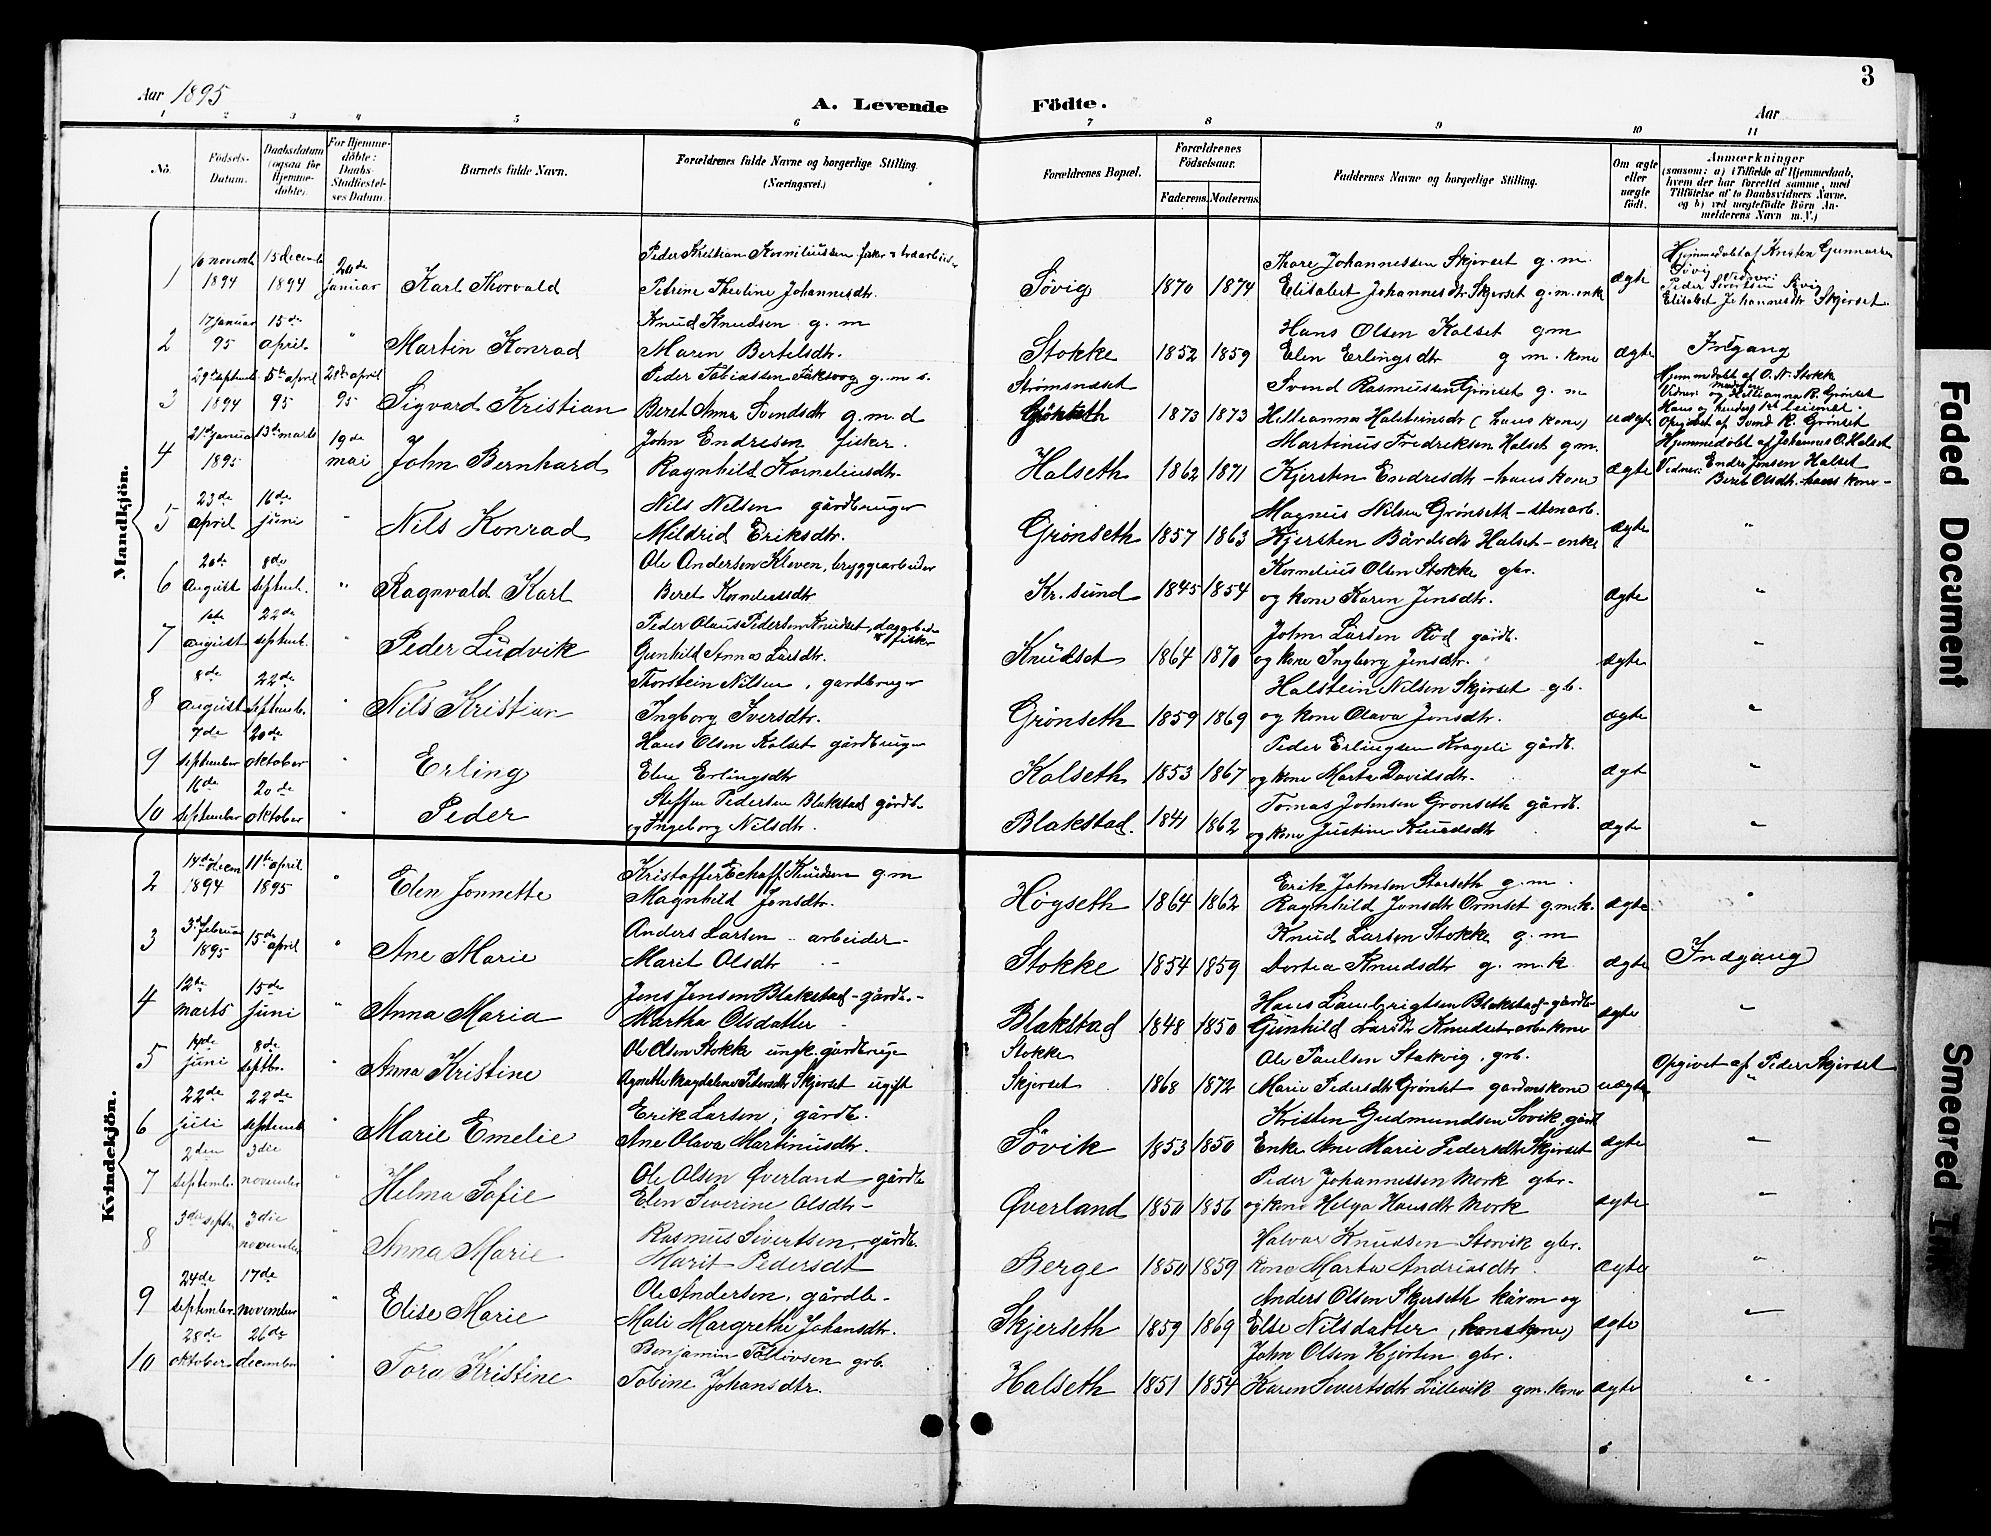 3
Aar 1895
A. Levende Födte.
Aar
1 2 3 4 5 6 7 8 9 10 11
No.
Födsels-Datum.
Daabsdatum (ogsaa for Hjemmedöbte).
For Hjemmedöbte: Daabs-Stadfæstelses Datum.
Barnets fulde Navn.
Forældrenes fulde Navne og borgerlige Stilling. (Næringsvei.)
Forældrenes Bopæl.
Forældrenes Födselsaar.
Faderens. Moderens.
Faddernes Navne og borgerlige Stilling.
Om ægte eller uægte födt.
Anmærkninger
(saasom: a) i Tilfælde af Hjemmedaab, hvem der har forrettet samme, med Tilföielse af to Daabsvidners Navne, og b) ved uægtefödte Börn Anmelderens Navn m. V.)
Mandkjön.
1 16 novemb 1894 15 decemb 1894 20de januar Karl Thorvald Peder Kristian Korneliussen fisker
Petrine Theoline Johannesdtr. Søvig 1870 1874 Thore Johannessen Skjerset g. m.
Elisabet Johannesdtr Skjerset g. m. enke ægte Hjemmedøbt af Kristen Gunnarsen Søvig
Vidner: Peder Sivertsen Søvig
Elisabet Johannesdtr Skjerset.
2 17 januar 95 15de april " Martin Konrad Knud Knudsen g. m
Maren Bertelsdtr. Stokke 1852 1859 Hans Olsen Kalset gm
Elen Erlingsdtr g m. kone ægte Indgang
3 29de septemb 1894 5te april 95 21de april 95 Sigvard Kristian Peder Tobiassen Faksvog g. m. s.
Beret Anna Svendsdtr g. m. d Strømsnæset
Grønseth 1873 1873 Svend Rasmussen Grønset g. m
Hillianna Halsteinsdtr (hans kone) uægte Hjemmedøbt af O. N. Stokke
Opgivet af Svend R. Grønset
4 21de januar 1895 13de marts 19de mai John Bernhard John Endresen fisker.
Ragnhild Korneliusdtr. Halseth 1862 1871 Martinus Fredriksen Halset g m.
Kjersten Endresdtr - hans kone ægte Hjemmedøbt af Johannes O. Halset
Vidner: Endre Jonsen Halset
Beret Olsdtr. hans kone -
5 23de april 16de juni " Nils Konrad Nils Nilsen gårdbruger
Mildrid Eriksdtr. Grønseth 1857 1863 Magnus Nilsen Grønseth - stenarb.
Kjersten Bårdsdtr Halset - enke ægte "
6 20de august 8de septemb. " Ragnvald Karl Ole Andersen Kleven, bryggearbeider
Beret Korneliusdtr Kr. sund 1845 1854 Kornelius Olsen Stokke gbr.
og kone Karen Jensdtr. ægte "
7 1ste august 22de septemb. " Peder Ludvik Peder Olaus Pedersen Knudset, dagarbeider
& fisker
Gunhild Anna Larsdtr. Knudset 1864 1870 John Larsen Rød gårdb.
og kone Ingborg Jensdtr. ægte "
8 8de august 22de septemb. " Nils Kristian Thorstein Nilsen, gardbruger
Ingborg Iversdtr. Grønseth 1859 1869 Halstein Nilsen Skjerset gb.
og kone Olava Jonsdtr. ægte "
9 7de september 20de oktober " Erling Hans Olsen Kalset gårdbruger
Elen Erlingsdtr Kalseth 1853 1867 Peder Erlingsen Krageli gårdb.
og kone Marta Davidsdtr. ægt "
10 16de september 20de oktober " Peder Steffen Pedersen Blakstad gårdb.
og Ingeborg Nilsdtr. Blakstad. 1841 1862 Tomas Johnsen Grønseth gårdb.
og kone Justine Knudsdtr ægte "
Kvindekjön.
2 14de decem 1894 11te april 1895 " Elen Jonnette Kristoffer Knudsen g m
Magnhild Jonsdtr. Høgseth 1864 1862 Erik Johnsen Storseth g. m.
Ragnhild Jonsdtr Ormset g. m. k. ægte "
3 3de februar 1895 15de april " Ane Marie Anders Larsen - arbeider -
Marit Olsdtr Stokke 1854 1859 Knud Larsen Stokke g. m
Dortea Knudsdtr g. m. k ægte Indgang
4 12de marts 15de juni " Anna Maria Jens Jensen Blakstad - gårdb. -
Martha Olsdatter Blakstad 1848 1850 Hans Lambrigtsen Blakstad - gårdb -
Gunhild Larsdtr Knudset - arb. kone ægte "
5 juni 8de septbr. " Anna Kristine Ole Olsen Stokke ungk. gårdbruger
Agnethe Magdalene Pedersdtr Skjerset ugift Stokke
Skjerset 1868 1872 Ole Paulsen Stakvig, grb.
Marie Pedersdtr Grønset gardmskone uægte Opgivet af Peder Skjerset
6 22de juli 22de septemb " Marie Emelie Erik Larsen, gårdb.
Ane Olava Martinusdtr. Søvik 1853 1850 Kristen Gudmundsen Søvik, gårdb
Enke Ane Marie Pedersdtr Skjerset ægte "
7 2den september 3die november " Helma Sofie Ole Olsen Øverland gårdb
Elen Severine Olsdtr - Øverland 1850 1856 Peder Johannessen Mork gbr.
og kone Helga Hansdtr Mork ægte "
8 3die septb. 3die november " Anna Marie Rasmus Sivertsen, gårdb.
Marit Pedersdt Berge 1850 1859 Halvar Knudsen Storvik gbr.
kone Marta Andreasdtr. ægte "
9 24de september 17de november " Elise Marie Ole Andersen, gårdb -
Mali Margrethe Johansdtr. Skjerseth 1859 1869 Anders Olsen Skjerseth kårm og
Else Nilsdatter, (hans kone) ægte "
10 28de oktober 26de december " Tora Kristine Benjamin Tostivsen grb.
Tobine Johansdtr. Halseth 1851 1854 John Olsen Hjorten gbr.
Karen Sivertsdtr Lillevik gm. kone ægte "
Faded Document
Smeared Ink